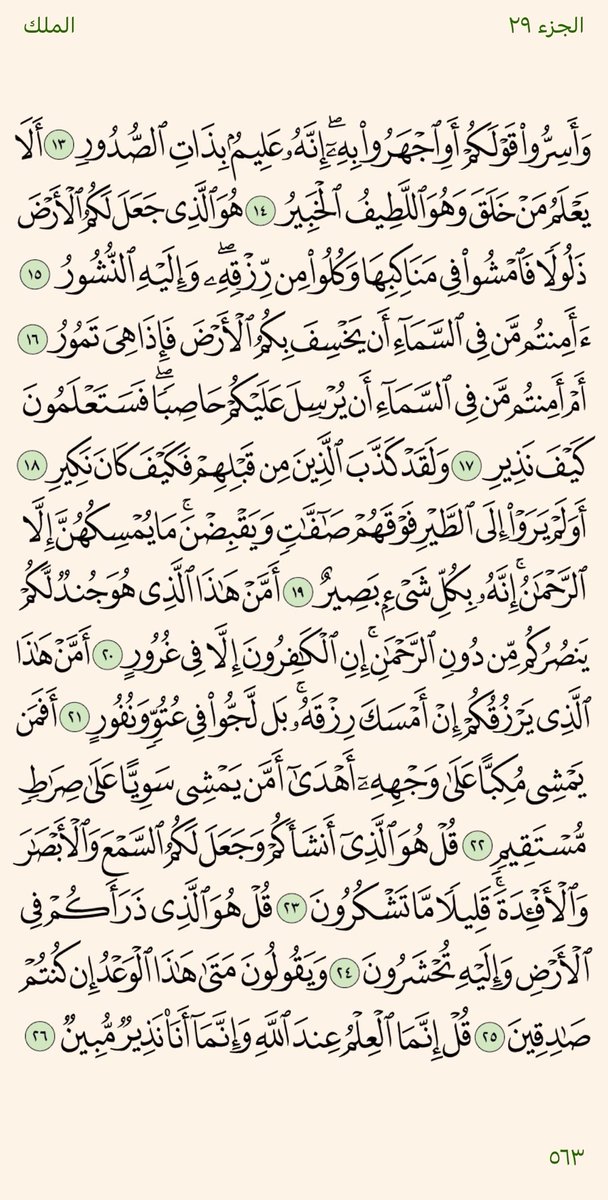 الجزء ٢٩
الملك
وَأَسِرُّوا۟ قَوْلَكُمْ أَوِ ٱجْهَرُوا۟ بِهِۦٓ ۖ إِنَّهُۥ عَلِيمٌۢ بِذَاتِ ٱلصُّدُورِ ١٣ أَلَا
يَعْلَمُ مَنْ خَلَقَ وَهُوَ ٱللَّطِيفُ ٱلْخَبِيرُ ١٤ هُوَ ٱلَّذِى جَعَلَ لَكُمُ ٱلْأَرْضَ
ذَلُولًا فَٱمْشُوا۟ فِى مَنَاكِبِهَا وَكُلُوا۟ مِن رِّزْقِهِۦ ۖ وَإِلَيْهِ ٱلنُّشُورُ ١٥
ءَأَمِنتُم مَّن فِى ٱلسَّمَآءِ أَن يَخْسِفَ بِكُمُ ٱلْأَرْضَ فَإِذَا هِىَ تَمُورُ ١٦
أَمْ أَمِنتُم مَّن فِى ٱلسَّمَآءِ أَن يُرْسِلَ عَلَيْكُمْ حَاصِبًا ۖ فَسَتَعْلَمُونَ
كَيْفَ نَذِيرِ ١٧ وَلَقَدْ كَذَّبَ ٱلَّذِينَ مِن قَبْلِهِمْ فَكَيْفَ كَانَ نَكِيرِ ١٨
أَوَلَمْ يَرَوْا۟ إِلَى ٱلطَّيْرِ فَوْقَهُمْ صَٰٓفَّٰتٍ وَيَقْبِضْنَ ۚ مَا يُمْسِكُهُنَّ إِلَّا
ٱلرَّحْمَٰنُ ۚ إِنَّهُۥ بِكُلِّ شَىْءٍۭ بَصِيرٌ ١٩ أَمَّنْ هَٰذَا ٱلَّذِى هُوَ جُندٌ لَّكُمْ
يَنصُرُكُم مِّن دُونِ ٱلرَّحْمَٰنِ ۚ إِنِ ٱلْكَٰفِرُونَ إِلَّا فِى غُرُورٍ ٢٠ أَمَّنْ هَٰذَا
ٱلَّذِى يَرْزُقُكُمْ إِنْ أَمْسَكَ رِزْقَهُۥ ۚ بَل لَّجُّوا۟ فِى عُتُوٍّ وَنُفُورٍ ٢١ أَفَمَن
يَمْشِى مُكِبًّا عَلَىٰ وَجْهِهِۦٓ أَهْدَىٰٓ أَمَّن يَمْشِى سَوِيًّا عَلَىٰ صِرَٰطٍ
مُّسْتَقِيمٍ ٢٢ قُلْ هُوَ ٱلَّذِىٓ أَنشَأَكُمْ وَجَعَلَ لَكُمُ ٱلسَّمْعَ وَٱلْأَبْصَٰرَ
وَٱلْأَفْـِٔدَةَ ۖ قَلِيلًا مَّا تَشْكُرُونَ ٢٣ قُلْ هُوَ ٱلَّذِى ذَرَأَكُمْ فِى
ٱلْأَرْضِ وَإِلَيْهِ تُحْشَرُونَ ٢٤ وَيَقُولُونَ مَتَىٰ هَٰذَا ٱلْوَعْدُ إِن كُنتُمْ
صَٰدِقِينَ ٢٥ قُلْ إِنَّمَا ٱلْعِلْمُ عِندَ ٱللَّهِ وَإِنَّمَآ أَنَا۠ نَذِيرٌ مُّبِينٌ ٢٦
٥٦٣